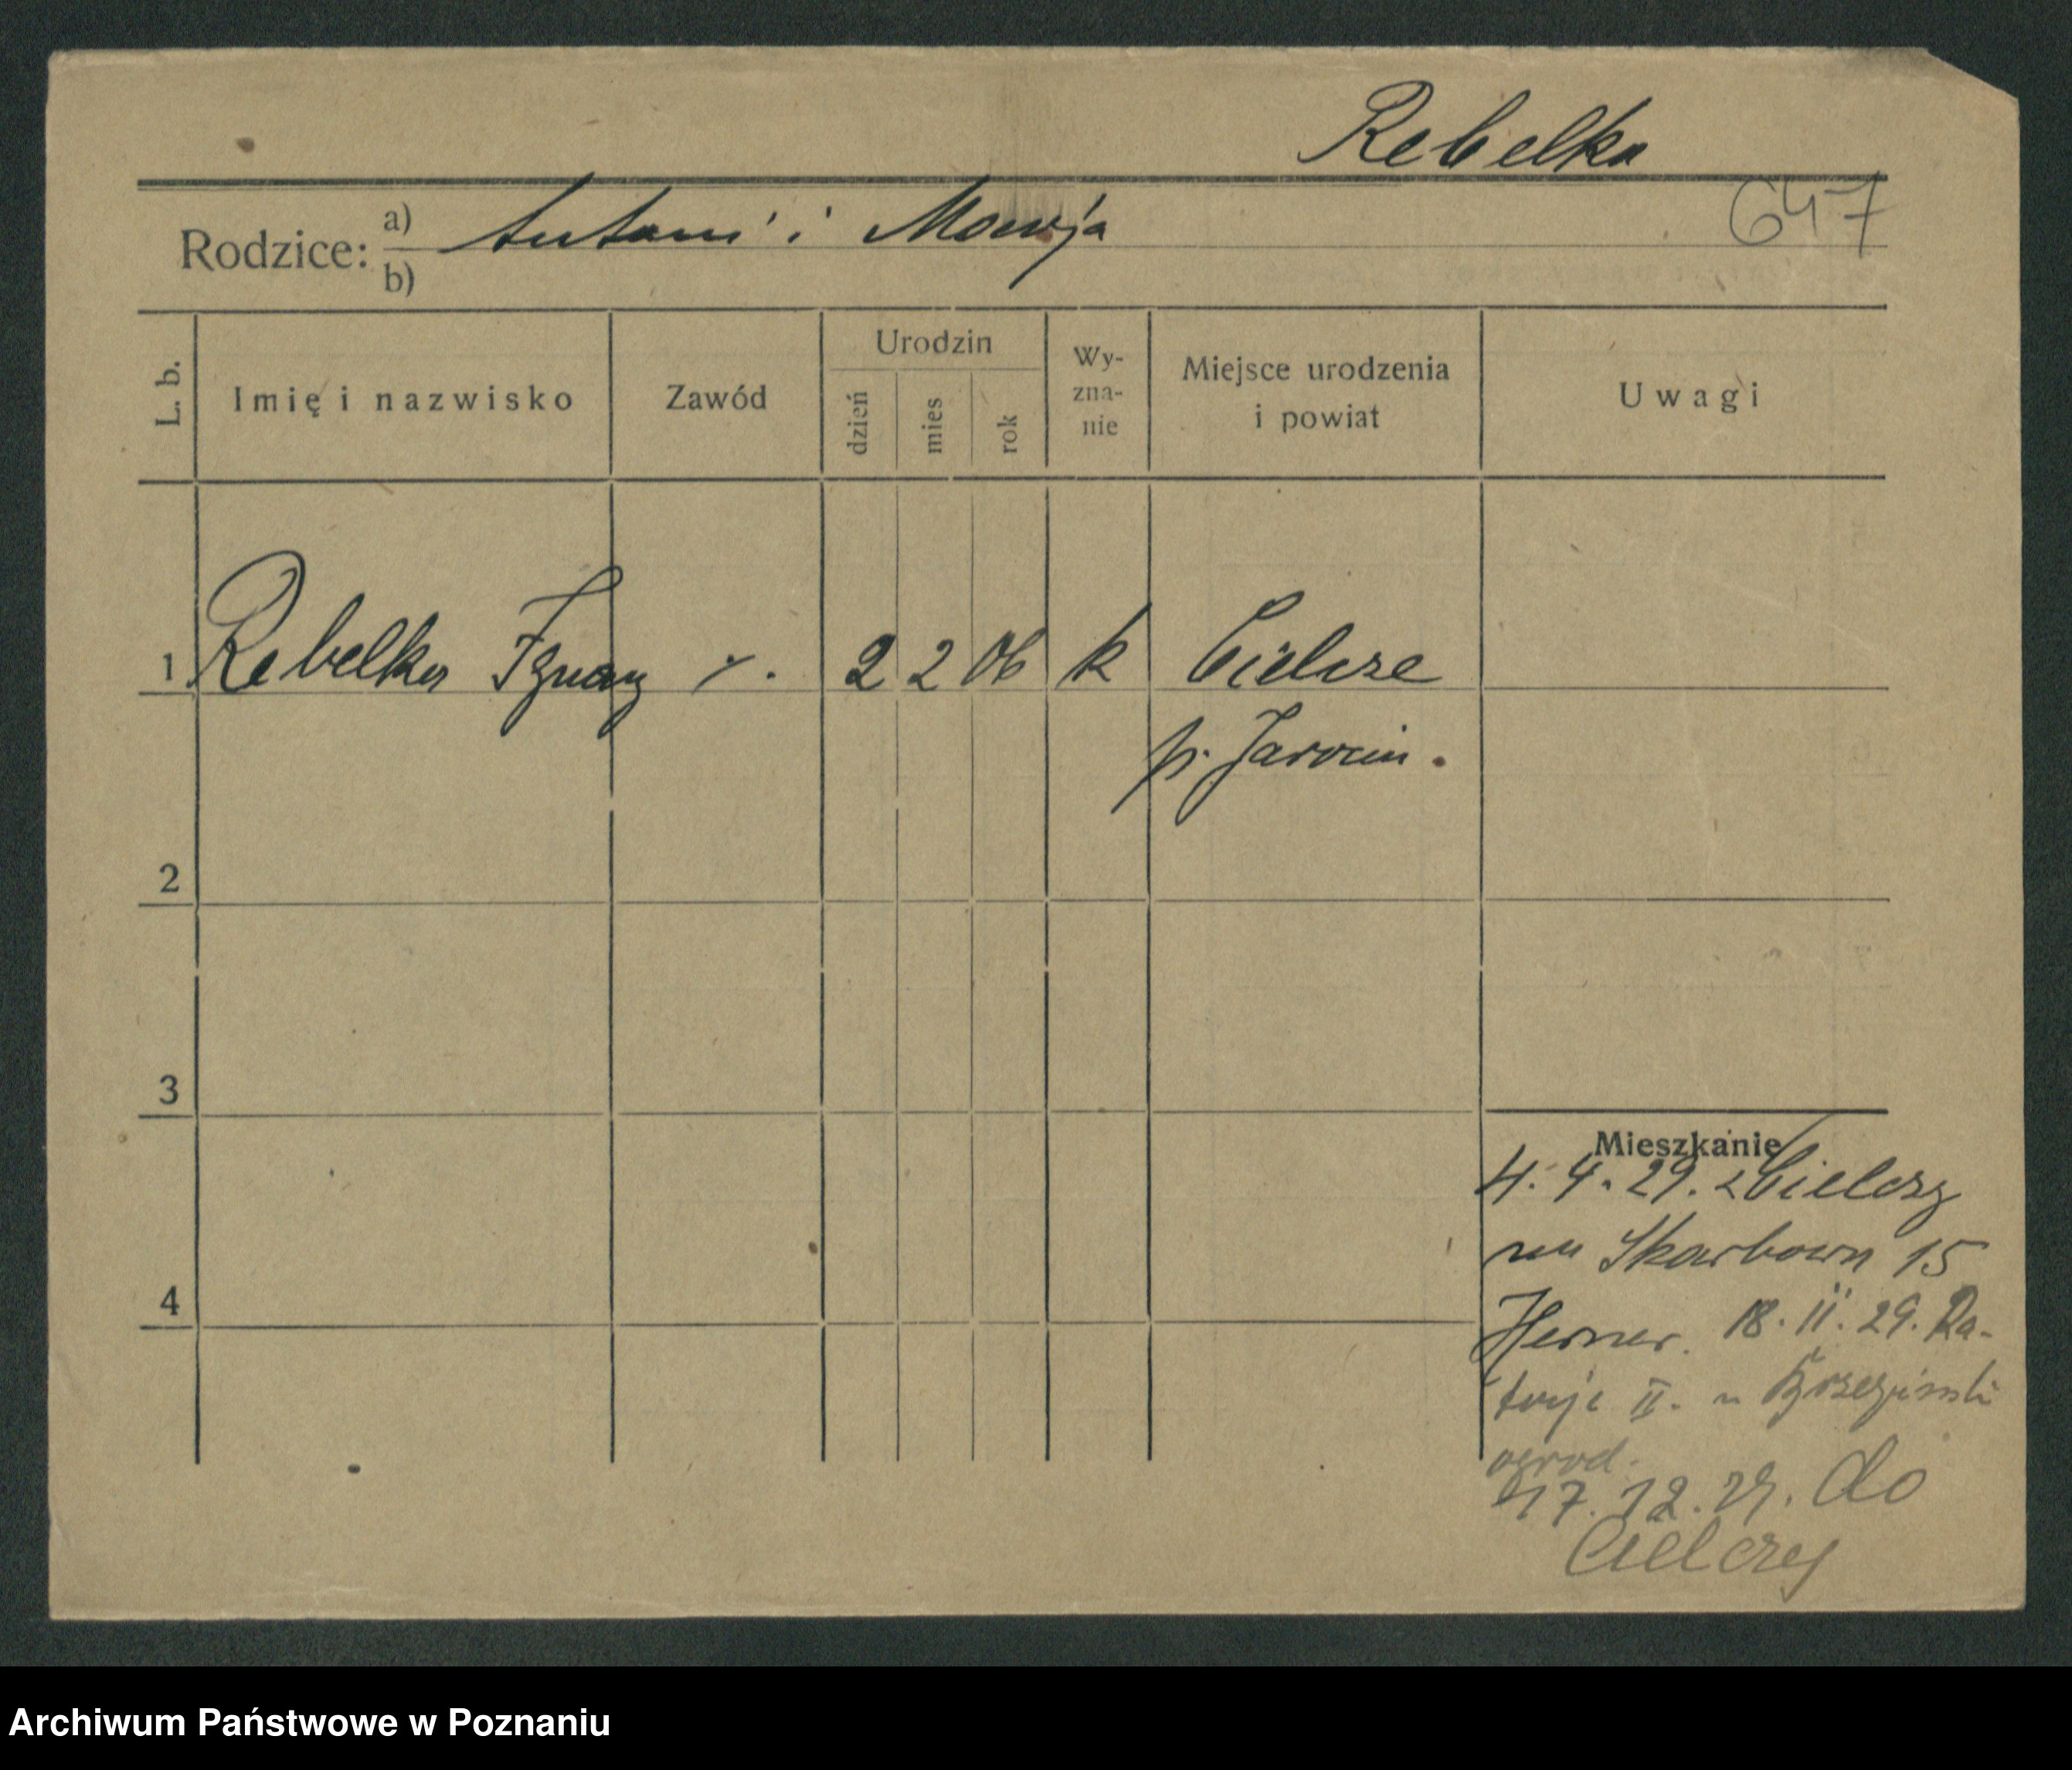 Rebelka
647
Rodzice: a) Antoni i Maryja
b)
L. b. Imię i nazwisko Zawód Urodzin dzień mies rok Wy-zna-nie Miejsce urodzenia i powiat Uwagi
1 Rebelka Ignacy 2 2 06 k Cielcze
p. Jarocin.
2
3
4
Mieszkanie
4. 4. 29. z Cielczy
na Skarbowa 15
18. 11. 29. Ra-
tuje II. u
ogrod.
17. 12. 29. do
Cielczy
Archiwum Państwowe w Poznaniu